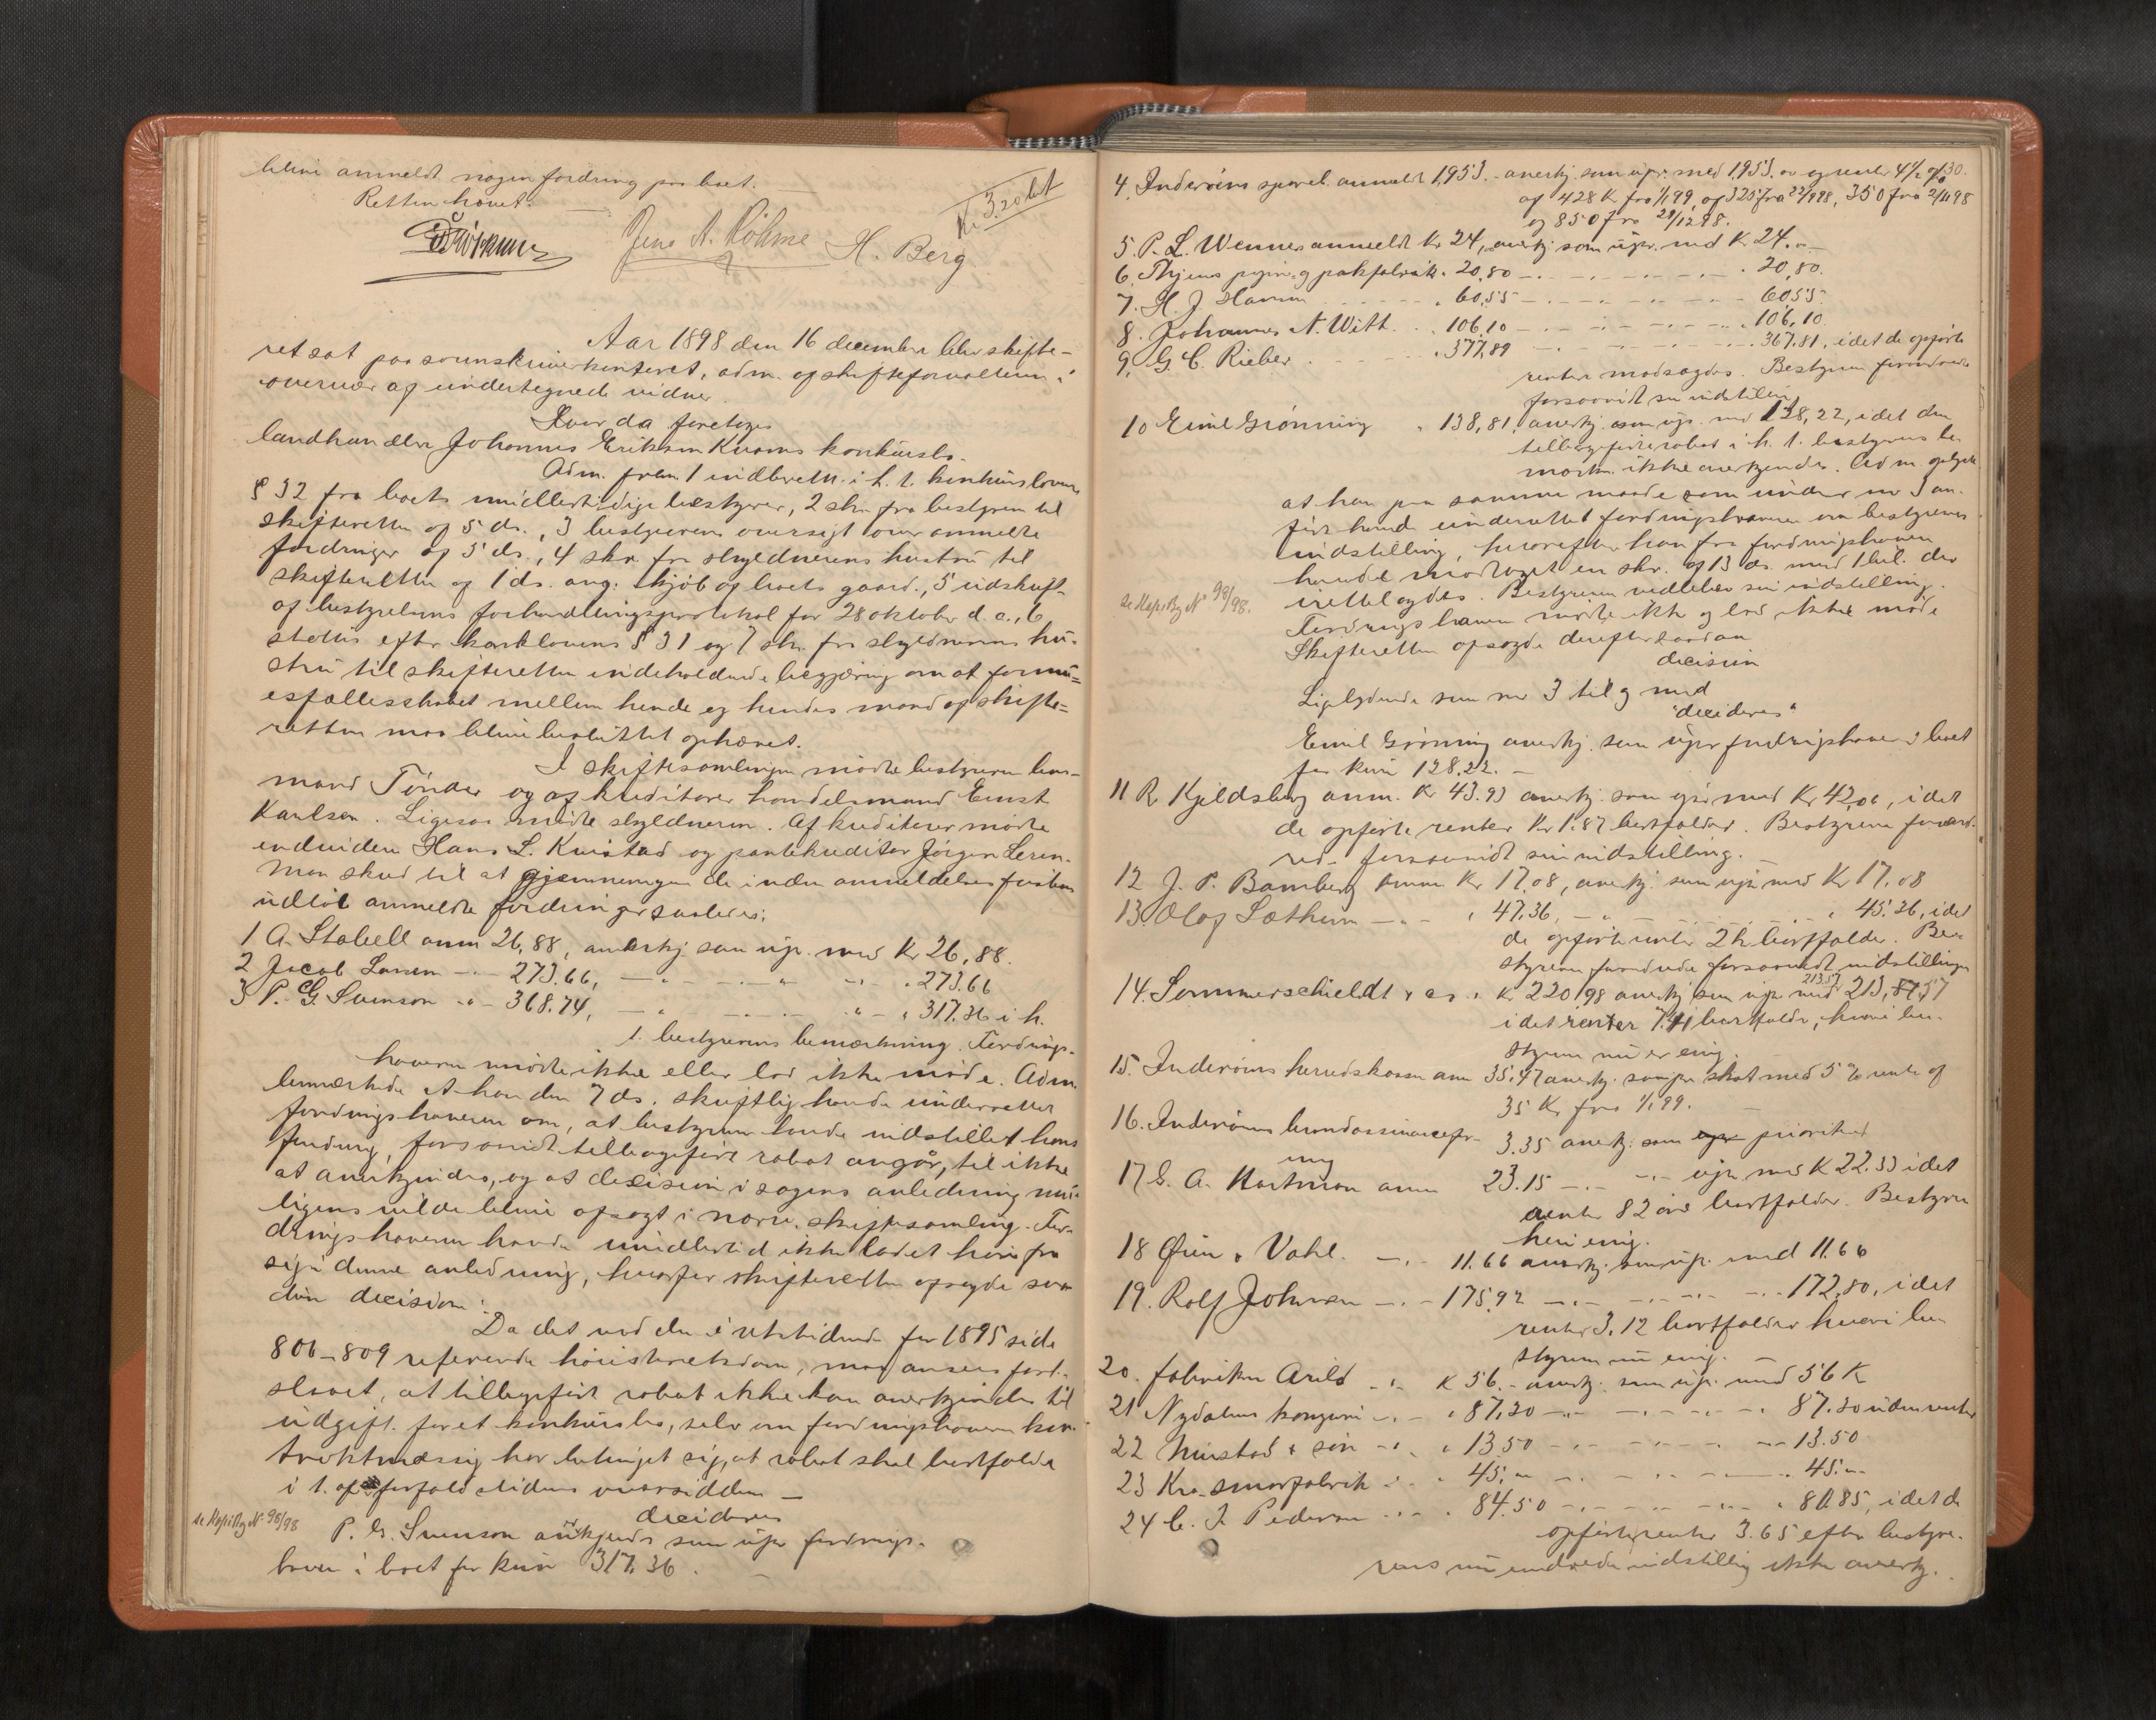 blive anmeldt nogen fordring paa boet. —
Retten hævet.
Jens A. Röhme H. Berg
Kr. 3.20 bet
Aar 1898 den 16 december blev skifte-
ret sat paa sorenskriverkontoret, adm. af skifteforvalteren i
overvær af undertegnede vidner.
Hvor da foretoges
landhandler Johannes Eriksen Kvams konkursbo.
Adm. frem. 1 indberetn. i h. t. konkurslovens
§ 32 fra boets midlertidige bestyrer, 2 skr. fra bestyren til
skifteretten af 5 ds., 3 bestyrerens oversigt over anmeldte
fordringer af 5 ds., 4 skr. fra skyldnerens hustru til
skifteretten af 1 ds. ang. kjøb af boets gaard., 5 udskrift
af bestyrelsens forhandlingsprotokol for 28 oktober d. a., 6
status efter konklovens § 31 og 7 skr. fra skyldnerens hu-
stru til skifteretten indeholdende begjæring om at formu=
esfællesskabet mellem hende og hendes mand af skifte=
retten maa blive besluttet ophævet.
I skiftesamlingen mødte bestyreren lens-
mand Tønder og af kreditorer handelsmand Ernst
Karlsen. Ligesaa mødte skyldneren. Af kreditorer mødte
endvidere Hans L. Kvistad og pantekreditor Jørgen Leren.
Man skred til at gjennemgaa de inden anmeldelsesfristens
udløb anmeldte fordringer saaledes:
1 A. Stabell anm 26,88, anerkj som upr. med Kr 26,88.
2 Jacob Larsen -"- 273.66, -"- -"- -"- 273.66
3 P. G Svenson -"- 368.74, -"- -"- -"- " 317.36 i h.
t. bestyrerens bemærkning. Fordrings-
haveren mødte ikke eller lod ikke møde. Adm.
bemærkede at han den 7 ds. skriftlig havde underrettet
fordringshaveren om, at bestyreren havde indstillet hans
fordring, forsaavidt tilbageført rabat angår, til ikke
at anerkjendes, og at decision i sagens anledning mu-
ligens vilde blive afsagt i nærv. skiftesamling. For-
dringshaveren havde imidlertid ikke ladet høre fra
sig i denne anledning, hvorfor skifteretten afsagde saa-
dan decision:
Da det ved den i retstidende for 1895 side
806-809 refererede høiesteretsdom, maa ansees fast-
slaaet, at tilbageført rabat ikke kan anerkjendes til
udgift for et konkursbo, selv om fordringshaveren kon-
traktmæssig har betinget sig, at rabat skal bortfalde
i t. af forfaldstidens oversidden —
decideres
se Kopibog N° 98/98
P. G. Svenson anerkjendes som upr fordrings-
haver i boet for kun 317.36. —
4. Inderøens spareb. anmeldt 1,953.- anerkj. som upr. med 1,953. " og renter 4½ %
af 428 K fra 1/1 99, af 325 fra 22/9 98, 350 fra 2/11 98
og 850 fra 29/12 98.
5. P. L. Wennes anmeldt Kr 24, anerkj som upr. med K 24. "
6. Thjems papir- og pakfabrik " 20.80 -"- -"- -"- " 20,80.
7. H. J. Hamm " 60.55 -"- -"- -"- 60.55.
8. Johannes N. Witt " 106,10 -"- -"- -"- " 106,10.
9. G. C. Rieber " 377,89 -"- -"- -"- 367.81, idet de opførte
renter modsagdes. Bestyreren forandrede
forsaavidt sin indstilling.
10 Emil Grønning " 138,81, anerkj. som upr. med 128,22, idet den
tilbageførte rabat i h. t. bestyrerens be-
mærkn. ikke anerkjendes. Adm. oplyste
at han paa samme maade som under no 3 an-
ført havde underrettet fordringshaveren om bestyrerens
indstilling, hvorefter han fra fordringshaveren
havde modtaget en skr. af 13 ds. med 1 bil. der
irettelagdes. Bestyreren vedblev sin indstilling.
se Kopibog N° 98/98.
Fordringshaveren mødte ikke og lod ikke møde
Skifteretten afsagde derefter saadan
decision
Ligelydende som no 3 til og med
"decideres"
Emil Grønning anerkj. som upr. fordringshaver i boet
for kun 128.22. —
11 R Kjeldsberg anm. Kr 43.93 anerkj. som upr med Kr 42,06, idet
de opførte renter Kr 1.87 bortfalder. Bestyreren forand-
rede forsaavidt sin indstilling. —
12 J. P. Bamberg anm Kr 17,08, anerkj. som upr med Kr 17.08
13. Olaf Sæthem -"- " 47.36, -"- " 45.36, idet
de opførte renter 2 k bortfalder. Be-
styreren forandrede forsaavidt indstillingen
14. Sommerschieldt & co. " Kr 220,98 anerkj som upr med 213,57
idet renter 7.41 bortfalder, hvori be-
styreren nu er enig.
15. Inderøens herredskasse anm 35,47 anerkj. som pr. skat med 5 % rente af
35 Kr fra 1/1 99. —
16. Inderøens brandassuranceforening 3.35 anerkj. som prioriteret
17 C. A. Hartman anm 23.15 -"- -"- upr. med K 22.33 idet
renter 82 øre bortfalder. Bestyren
heri enig.
18 Øien & Wahl. -"- 11.66 anerkj. som upr. med 11.66
19. Rolf Johnsen -"- 175,92 -"- -"- -"- 172,80, idet
renter 3.12 bortfalder hvori be-
styreren nu enig. —
20. fabriken Arild -"- K 56.- anerkj. som upr. med 56 K
21 Nydalens kompani -"- " 87.20 -"- -"- -"- 87.20 uden renter
22 Mustad & søn -"- " 13.50 -"- -"- 13.50
23 Kra. smørfabrik -"- " 45. " -"- -"- " 45. "
24 C. J. Pedersen -"- " 84.50 -"- -"- " 80.85, idet de
opførte renter 3.65 efter bestyre-
rens nu endrede indstilling ikke anerkj.